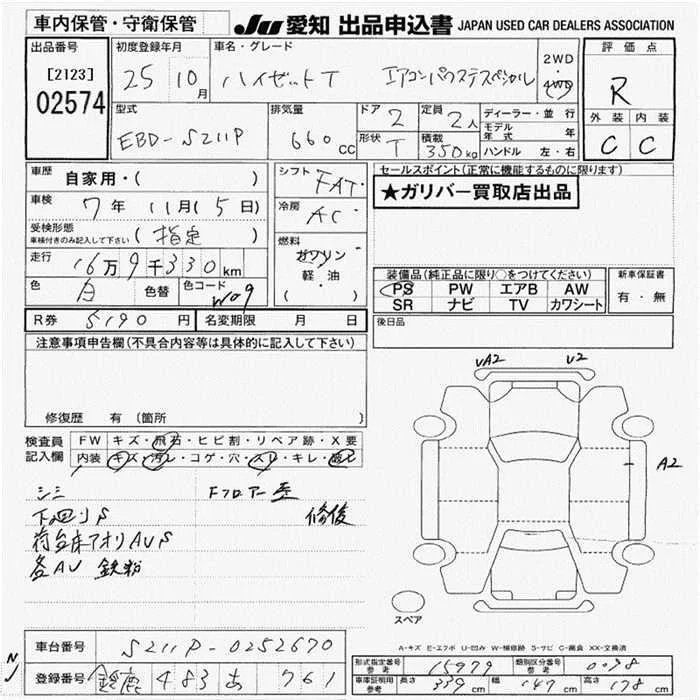 車内保管・守衛保管
JU 愛知 出品申込書 JAPAN USED CAR DEALERS ASSOCIATION
出品番号
[2123]
02574
初度登録年月
25 10月
車名・グレード
ハイゼットT エアコンパワステスペシャル
2WD
4WD
評価点
R
外装 内装
C C
型式
EBD-S211P
排気量
660 cc
ドア 2
定員 2人
形状 T
積載 350kg
ディーラー・並行
モデル年式 年
ハンドル 左・右
車歴 自家用・( )
車検 7年 11月(5日)
受検形態
車検付きのみ記入して下さい
(指定 )
走行 16万9千330km
色 白 色替 色コード W09
シフト FAT
冷房 AC
燃料
ガソリン
軽・油
( )
セールスポイント(正常に機能するものに限ります)
★ガリバー買取店出品
装備品(純正品に限り○をつけてください)
PS PW エアB AW
SR ナビ TV カワシート
新車保証書
有・無
後日品
R券 5190円 名変期限 月 日
注意事項申告欄(不具合内容等は具体的に記入して下さい)
修復歴 有 〔箇所 〕
検査員
記入欄
FW キズ・飛石・ヒビ割・リペア跡・X要
内装 キズ・汚レ・コゲ・穴・スレ・キレ・
シミ
下廻りS
荷台床アオリAUS
各AU 鉄粉
Fフロアー歪
修復
UA2 U2
A2
スペア
A-キズ E-エクボ U-凹み W-補修跡 S-サビ C-腐食 XX-交換済
車台番号 S211P-0252670
登録番号 鈴鹿 483 あ 761
NJ
形式指定番号
参考
15979
類別区分番号
参考
0078
車庫証明用
参考
長さ 339cm 幅 147cm 高さ 178cm